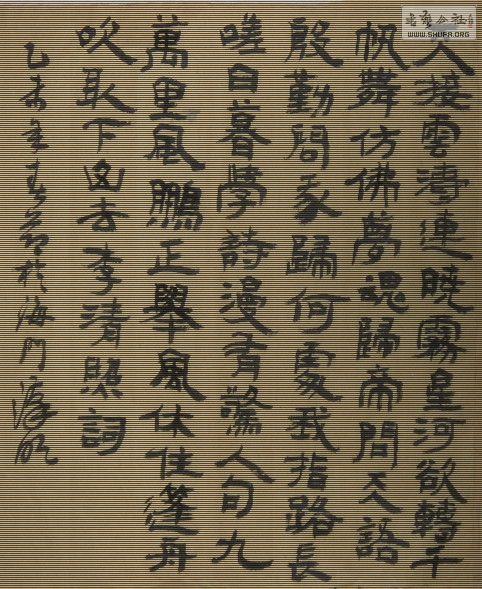 天接雲濤連曉霧星河欲轉千
帆舞仿佛夢魂歸帝間天語
殷勤問歸何處我指路長
嗟日暮學詩漫有驚人句九
萬里風鵬正舉風休住篷舟
吹取下去李清照詞
乙未年春節於海門
WWW.SHUFA.ORG